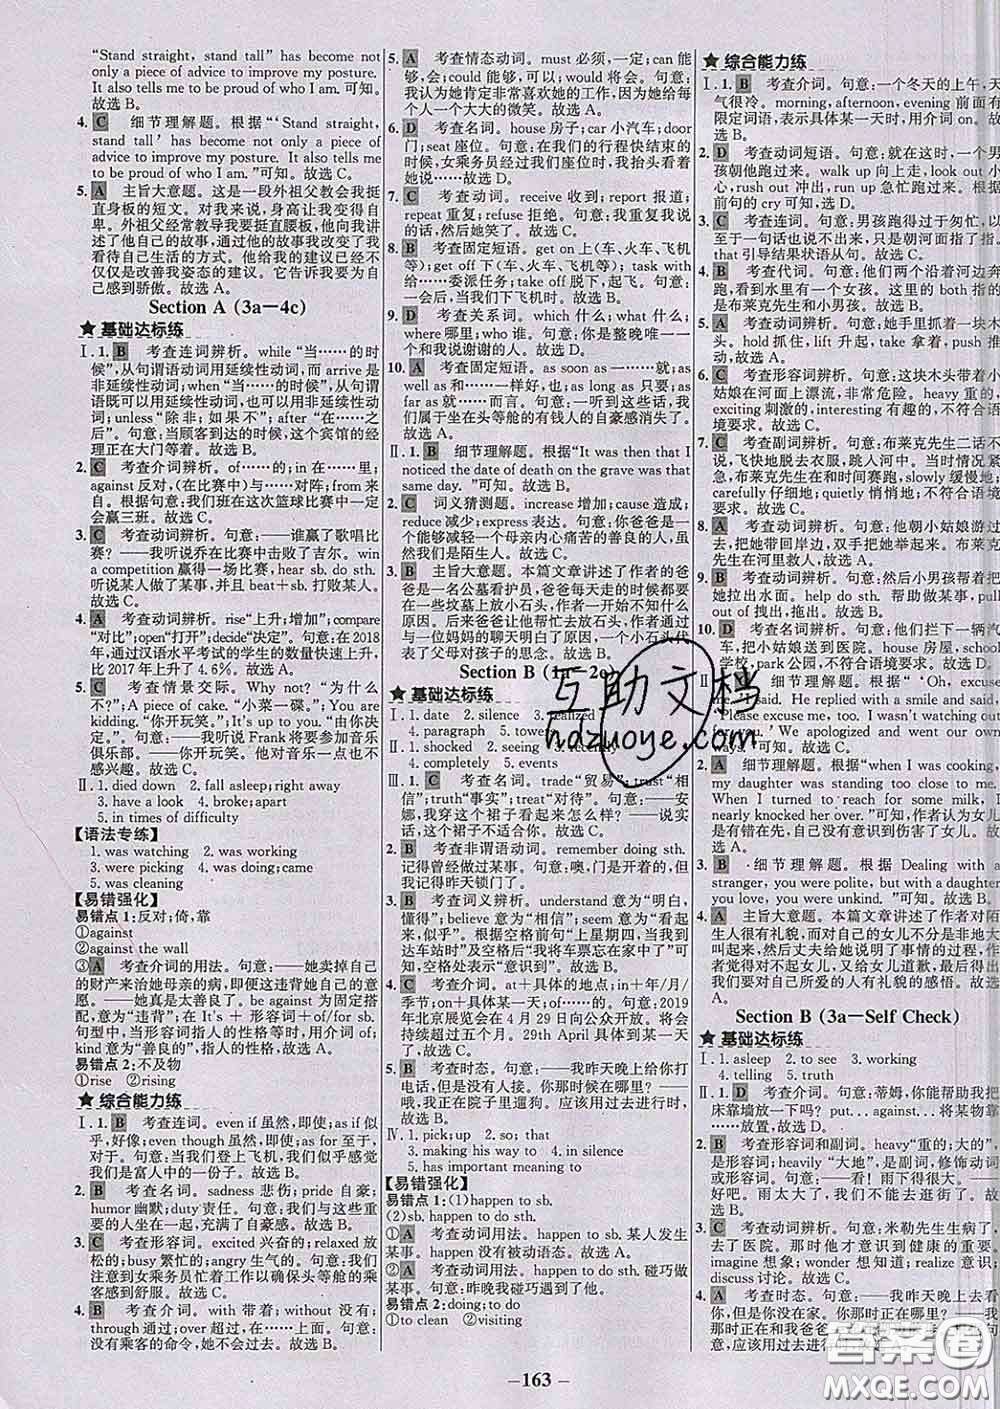 "Stand straight, stand tall" has become not
only a piece of advice to improve my posture.
It also tells me to be proud of who I am. 可知。
故选 B。
4. C 细节理解题。根据"'Stand straight,
stand tall' has become not only a piece of
advice to improve my posture. It also tells me
to be proud of who I am."可知。故选 C。
5. A 主旨大意题。这是一段外祖父教会我挺
直身板的短文。对我来说,身高让我变得自
卑。外祖父经常教导我要挺直腰板,他向我讲
述了他自己的故事,通过他的故事我改变了我
看待自己生活的方式。他给我的建议已经不
仅仅是改善我姿态的建议。它还告诉我为自
己感到骄傲。故选 A。
Section A (3a—4c)
★ 基础达标练
Ⅰ. 1. B 考查连词辨析。while "当……的时
候",从句谓语动词用延续性动词,而 arrive 是
非延续性动词;when "当……的时候",从句谓
语既可以用延续性动词,也可以用非延续性动
词;unless "除非;如果不";after "在……之
后"。句意:当顾客到达的时候,这个宾馆的经
理正在大门等着。故选 B。
2. C 考查介词辨析。of……的;in 在……里;
against 反对,(在比赛中)与……对阵;from 来
自。根据句意:我们班在这次篮球比赛中一定
会赢三班。故选 C。
3. C 考查动词辨析。句意:——谁赢了歌唱比
赛?——我听说乔在比赛中击败了吉尔。win
a competition 赢得一场比赛, hear sb. do sth.
听说某人做了某事,并且 beat+sb. 打败某人。
故选 C。
4. A 考查动词辨析。rise"上升;增加";compare
"对比";open"打开";decide"决定"。句意:在 2018
年,通过汉语水平考试的学生的数量快速上升,
比 2017 年上升了 4.6%。故选 A。
5. C 考查情景交际。Why not? "为什么
不?";A piece of cake. "小菜一碟。";You are
kidding. "你开玩笑。";It's up to you. "由你决
定。"。句意:——我听说 Frank 将要参加音乐
俱乐部。——你开玩笑。他对音乐一点也不
感兴趣。故选 C。
Ⅱ. 1. died down 2. fall asleep;right away
3. have a look 4. broke;apart
5. in times of difficulty
【语法专练】
1. was watching 2. was working
3. were picking 4. came;was doing
5. was cleaning
【易错强化】
易错点 1:反对;倚,靠
①against
②against the wall
③A 考查介词的用法。句意:——她卖掉自己
的财产来治她母亲的病,即便这违背她自己的意
愿。——她真是太善良了。be against 为固定搭
配,意为"违背"。在 It's + 形容词+of/for sb.
句型中,当形容词指人的性格等时,用介词 of;
kind 意为"善良的",指人的性格,故选 A。
易错点 2:不及物
①rise ②rising
★ 综合能力练
Ⅰ. 1. B 考查连词。even if 虽然,即使;as if 似
乎,好像;even though 虽然,即使;as for 至于,
对于。句意:当我们登上飞机,我们好像觉得我
们是富人中的一份子。故选 B。
2. B 考查名词。sadness 悲伤;pride 自豪;
humor 幽默;duty 责任。句意:我们将与这些重
要的人坐在一起,充满了自豪感。故选 B。
3. C 考查形容词。excited 兴奋的;relaxed 放
松的;busy 繁忙的;angry 生气的。句意:我们
注意到女乘务员忙着工作以确保头等舱的乘
客感到舒服。故选 C。
4. B 考查介词。with 带着;without 没有;
through 通过;over 超过,在……上面。句意:
没有乘客的命令,她不会离开。故选 B。
5. A 考查情态动词。must 必须,一定;can 能
够,会;could 能够,可以;need 需要。句意:
我认为她肯定非常喜欢她的工作,因为她给每
个人一个大大的微笑。故选 A。
6. D 考查名词。house 房子;car 小汽车;door
门;seat 座位。句意:在我们的行程快结束的
时候,女乘务员经过我们座位时,我抬头看着
她说……故选 D。
7. C 考查动词。receive 收到;report 报道;
repeat 重复;refuse 拒绝。句意:我重复我说
的话,然后她笑了。故选 C。
8. B 考查固定短语。get on 上(车、火车、飞机
等);get off 下(车、火车、飞机等);task with
……委派任务;take off 脱下,起飞。句意:当
我们下了飞机时。故选 B。
9. D 考查关系词。which 什么;what 什么;
where 哪里;who 谁。句意:你是整晚唯一一
个和我说谢谢的人。故选 D。
10. A 考查固定短语。as soon as 一……就;as
well as 和……一样好,也;as long as 只要;as
far as 就……而言。句意:一听到这些话,我
们属于坐在头等舱的有钱人的自豪感消失了。
故选 A。
Ⅱ. 1. B 细节理解题。根据"It was then that I
noticed the date of death on the grave was that
same day. "可知。故选 B。
2. C 词义猜测题。increase 增加;cause 造成;
reduce 减少;express 表达。句意:你爸爸是一
个能够减轻一个母亲内心痛苦的善良的人,虽
然我们是陌生人。故选 C。
3. B 主旨大意题。本篇文章讲述了作者的爸
爸是一名公墓看护员,爸爸每天走的时候都会
在一些坟墓上放小石头,作者开始不明白原
因。后来爸爸让他帮忙放石头,作者通过一次
与妈妈的聊天明白了原因,一个小石头代
表了父母对孩子的思念。故选 B。
Section B (1a—2e)
★ 基础达标练
Ⅰ. 1. date 2. silence 3. realized
4. paragraph 5. tower
Ⅱ. 1. shocked 2. seeing 3. recently
4. completely 5. events
Ⅲ. 1. C 考查名词。trade "贸易";trust "相
信";truth"事实";treat"对待"。句意:——安
娜,我穿这个裙子看起来怎么样?——说实
话,这个裙子不适合你。故选 C。
2. B 考查非谓语动词。remember doing sth.
记得曾经做过某事。句意:噢,门是开着的,但
是我记得昨天锁门了。故选 B。
3. B 考查词义辨析。understand 意为"明白,
懂得";believe 意为"相信";seem 意为"看起
来,似乎"。根据空格前句"上星期四,当我到
达车站时"及空格后"我将车票忘在家中了"可
知,空格处表示"意识到"。故选 B。
4. C 考查介词。at+具体的地点;in+年/月/
季节;on+具体某一天;of……的。句意:2019
年北京展览会在 4 月 29 日向公众开放。将会
持续超过五个月。29th April 具体到某一天
了。故选 C。
5. B 考查时态。句意:——我昨天晚上给你打
电话了,但是没人接。你那时在哪里?——
哦,我正在院子里遛狗。应该用过去进行时。
故选 B。
Ⅳ. 1. pick;up 2. so;that
3. making his way to 4. in silence
5. has important meaning to
【易错强化】
易错点 1:(1)happen to sb.
(2)sb. happen to do sth.
①A 考查动词用法。happen to sb. 某人发生
某事。happen 没有被动语态。故选 A。
②A 考查动词用法。happen to do sth. 碰巧做
某事。句意:昨晚我碰巧遇到了他。
易错点 2:doing;to do
①to clean ②visiting
★ 综合能力练
Ⅰ. 1. B 考查介词。句意:一个冬天的上午,天
气很冷。morning, afternoon, evening 前面有
限定词语,表示具体某一天时,用介词 on。故
选 B。
2. D 考查动词短语。句意:就在这时,一个小
男孩朝他跑过来。walk up 向上走,look out 小
心,rush out 冲出,run up 急忙跑过来。根据
前句的 cry 可知,选 D。
3. C 考查连词。句意:男孩跑得过于匆忙,以
至于一句话也说不出来,只是朝河面指了指。
that 引导结果状语从句。故选 C。
4. B 考查代词。句意:他们两个沿着河边奔
跑,看到水里有一个女孩。这里的 both 指的
是布莱克先生和小男孩。故选 B。
5. A 考查动词。句意:她手里抓着一块木
头。hold 抓住,lift 升起,take 拿着,push 推
动。故选 A。
6. C 考查形容词辨析。句意:这块木头带着小
姑娘在河面上漂流,非常危险。heavy 重的,
exciting 刺激的,interesting 有趣的,不符合语
境要求。故选 C。
7. C 考查副词辨析。句意:布莱克先生二话不
说,飞快地脱去衣服,跳入河中。当时情况紧
急,slowly 缓慢地;
carefully 仔细地;quietly 悄悄地;不符合语境
要求。故选 C。
8. A 考查动词辨析。句意:他朝小姑娘游过
去,把她带回岸边,双手把她举起来。布莱克
先生在河里救人。故选 A。
9. B 考查动词。句意:然后小男孩帮着把
她拉出水面。help do sth. 帮助做某事,pull
out of 拽出,拖出。故选 B。
10. D 考查名词辨析。句意:他们拦下一辆汽
车,把小姑娘送到医院。house 房屋,school
学校,park 公园,不符合语境要求。故选 D。
Ⅱ 细节理解题。根据" 'Oh, excuse
me.' I said. He replied with a smile and said,
'Please excuse me, too. I wasn't watching out
for you.' We apologized and went our own
ways."可知。故选 B。
2. A 细节理解题。根据"when I was cooking,
my daughter was standing too close to me.
When I turned to reach for some milk, I
nearly knocked her over."可知。作者认为女儿
是有错在先,自己没有意识到伤害了女儿。故选
A。
3. B 细节理解题。根据 Dealing with a
stranger, you were polite, but with a daughter
you love, you were unkind. "可知。故选 B。
4. A 主旨大意题。本篇文章讲述了作者对陌
生人很有礼貌,但是对自己的女儿不分是非大
叫起来,然后丈夫给她说明了事情的过程,作
者觉得对不起女儿,又向女儿道歉,最后得
出要对自己所爱的人有礼貌的感悟。故选 A。
Section B (3a—Self Check)
★ 基础达标练
Ⅰ. 1. asleep 2. to see 3. working
4. telling 5. truth
Ⅱ. 1. D 考查介词。句意:蒂姆,你能帮助我把
床靠墙放一下吗? put…against… 将某物靠
……放置,故选 D。
2. B 考查形容词和副词。heavy"重的;大的",
是形容词;heavily "大地",是副词,修饰动词
或形容词。句意:——看!雨下得很大。——
好吧。雨太大了,我们不能去逛街了。故
选 B。
3. C 考查动词辨析。句意:米勒先生生病了,
去了医院。那时他才意识到健康的重要。
imagine 想象;wonder 想知道;realize 意识到;
discuss 讨论。故选 C。
4. A 考查时态。句意:——我昨天晚上去看
你,但是你没在家。你那时在哪里?——我
那时正在和我爸爸
时。故选 A。
互助文档
hdzuoye.com
答案圈
MXQE.COM
— 163 —